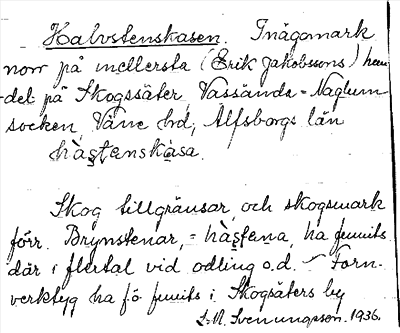 Halvstenskasen. Inägomark
norr på mellersta (Erik Jakobssons) hem
-det på Skogssäter, Vassända-Naglum
socken, Väne hd, Älfsborgs län
hàs̱tenskàsa.
Skog tillgränsar, och skogsmark
förr. Brynstenar, = hàs̱tena, ha funnits
där i flertal vid odling o.d. – Forn-
verktyg ha fö funnits i Skogsäters by
L.M. Svenungsson. 1936.